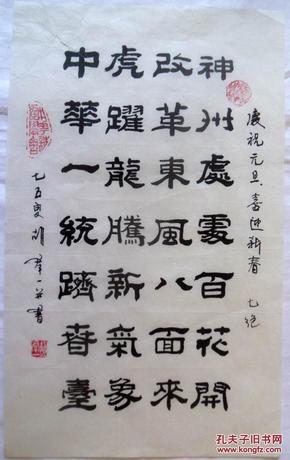 慶祝元旦喜迎新春 七絕
神州處處百花開
改革東風八面來
虎躍龍騰新氣象
中華一統躋春臺
七五叟胡
書
孔夫子旧书网
kongfz.com